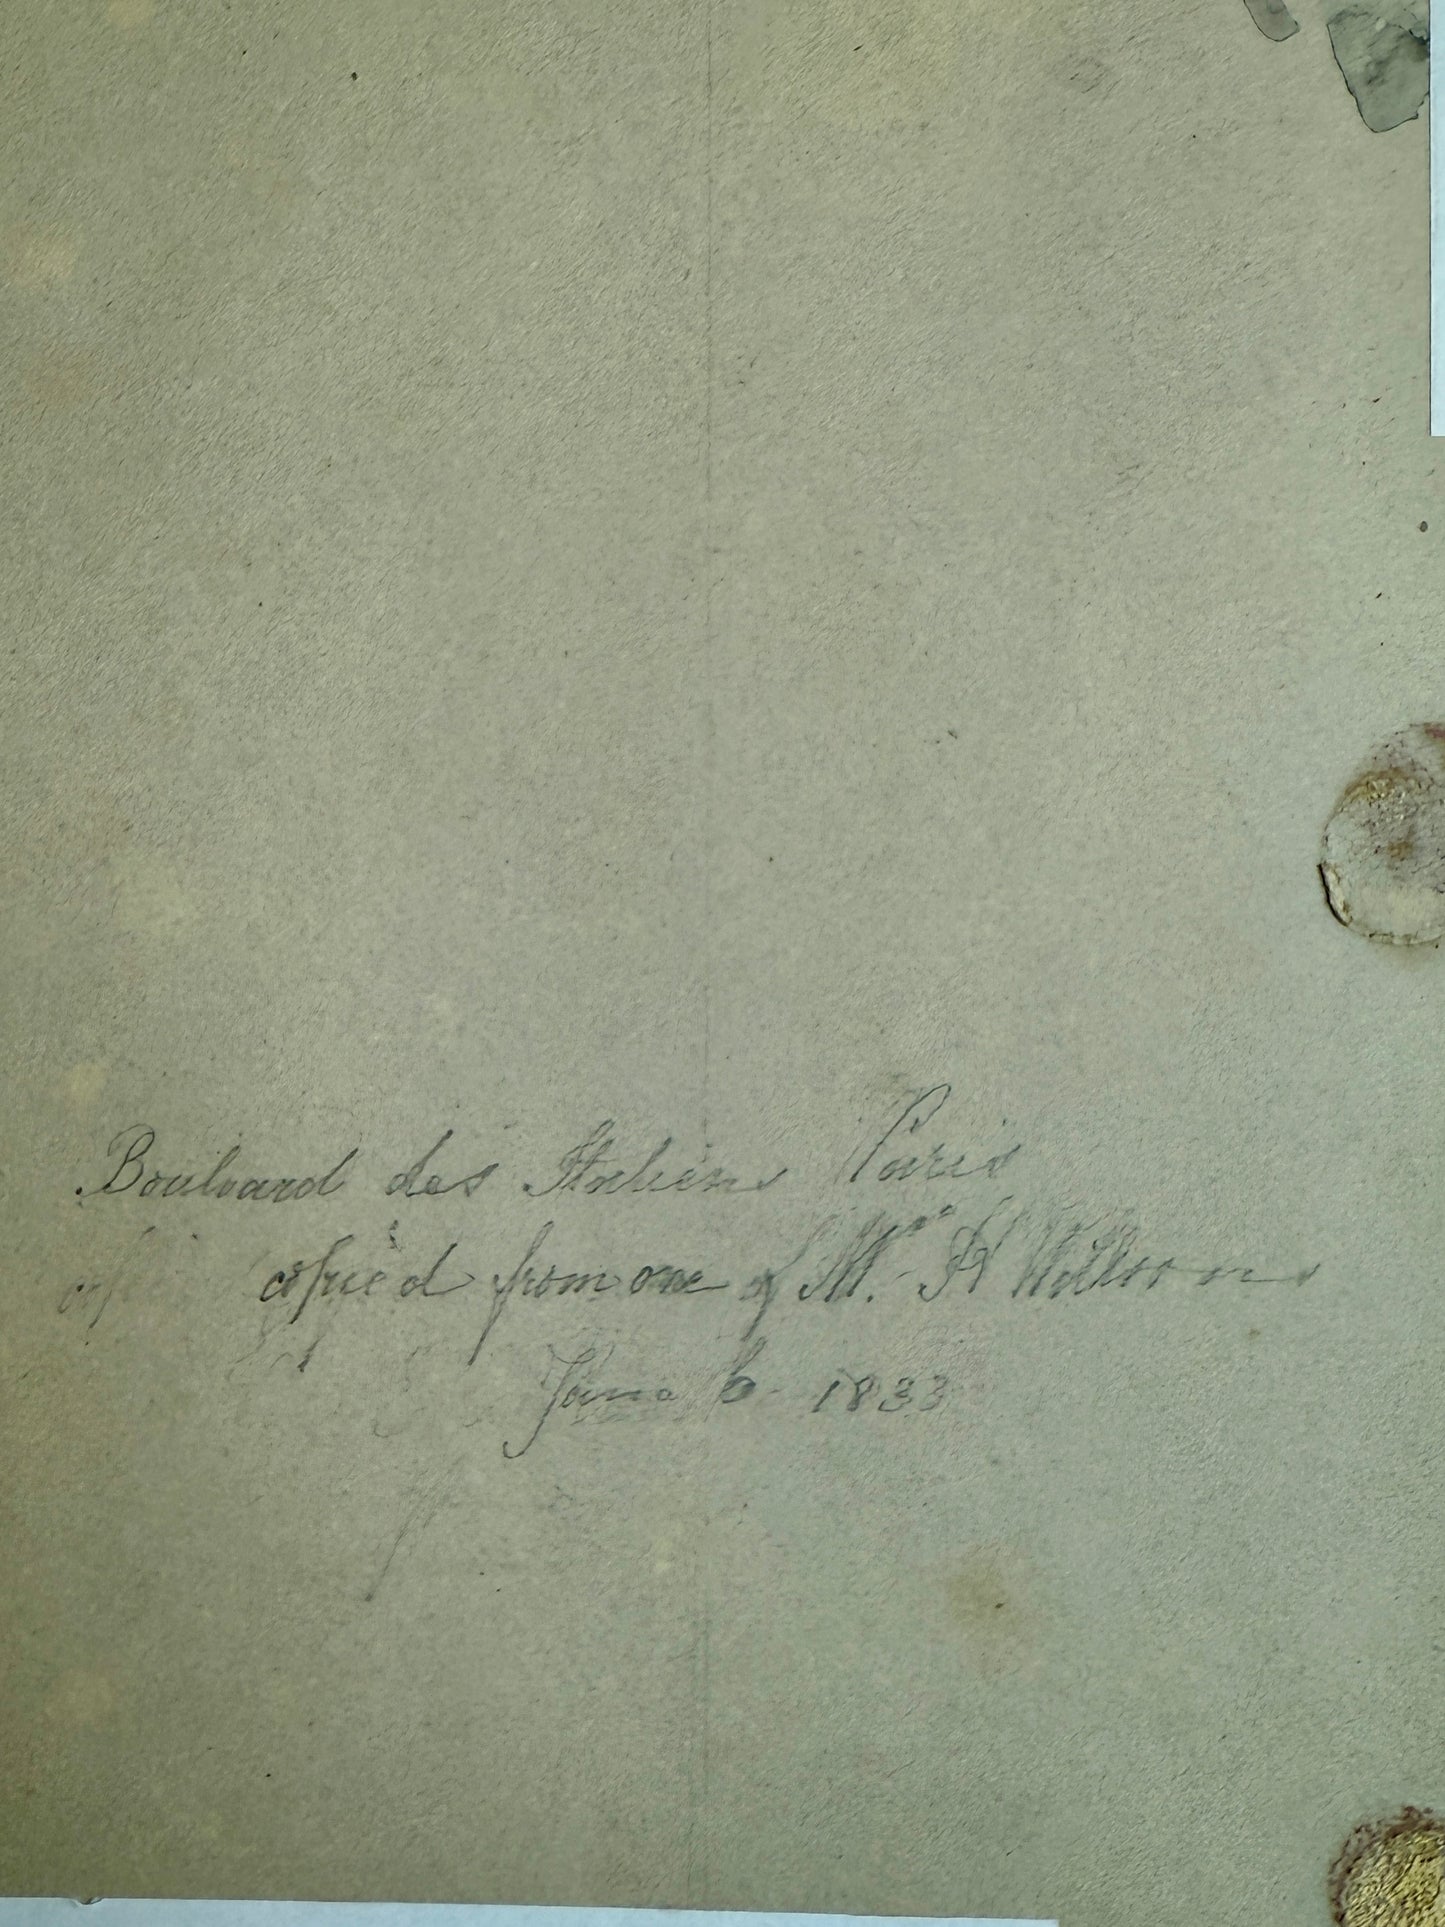 Boulvard des Italiens Paris
copied from one of Mrs. H Willsons
June 6 1833